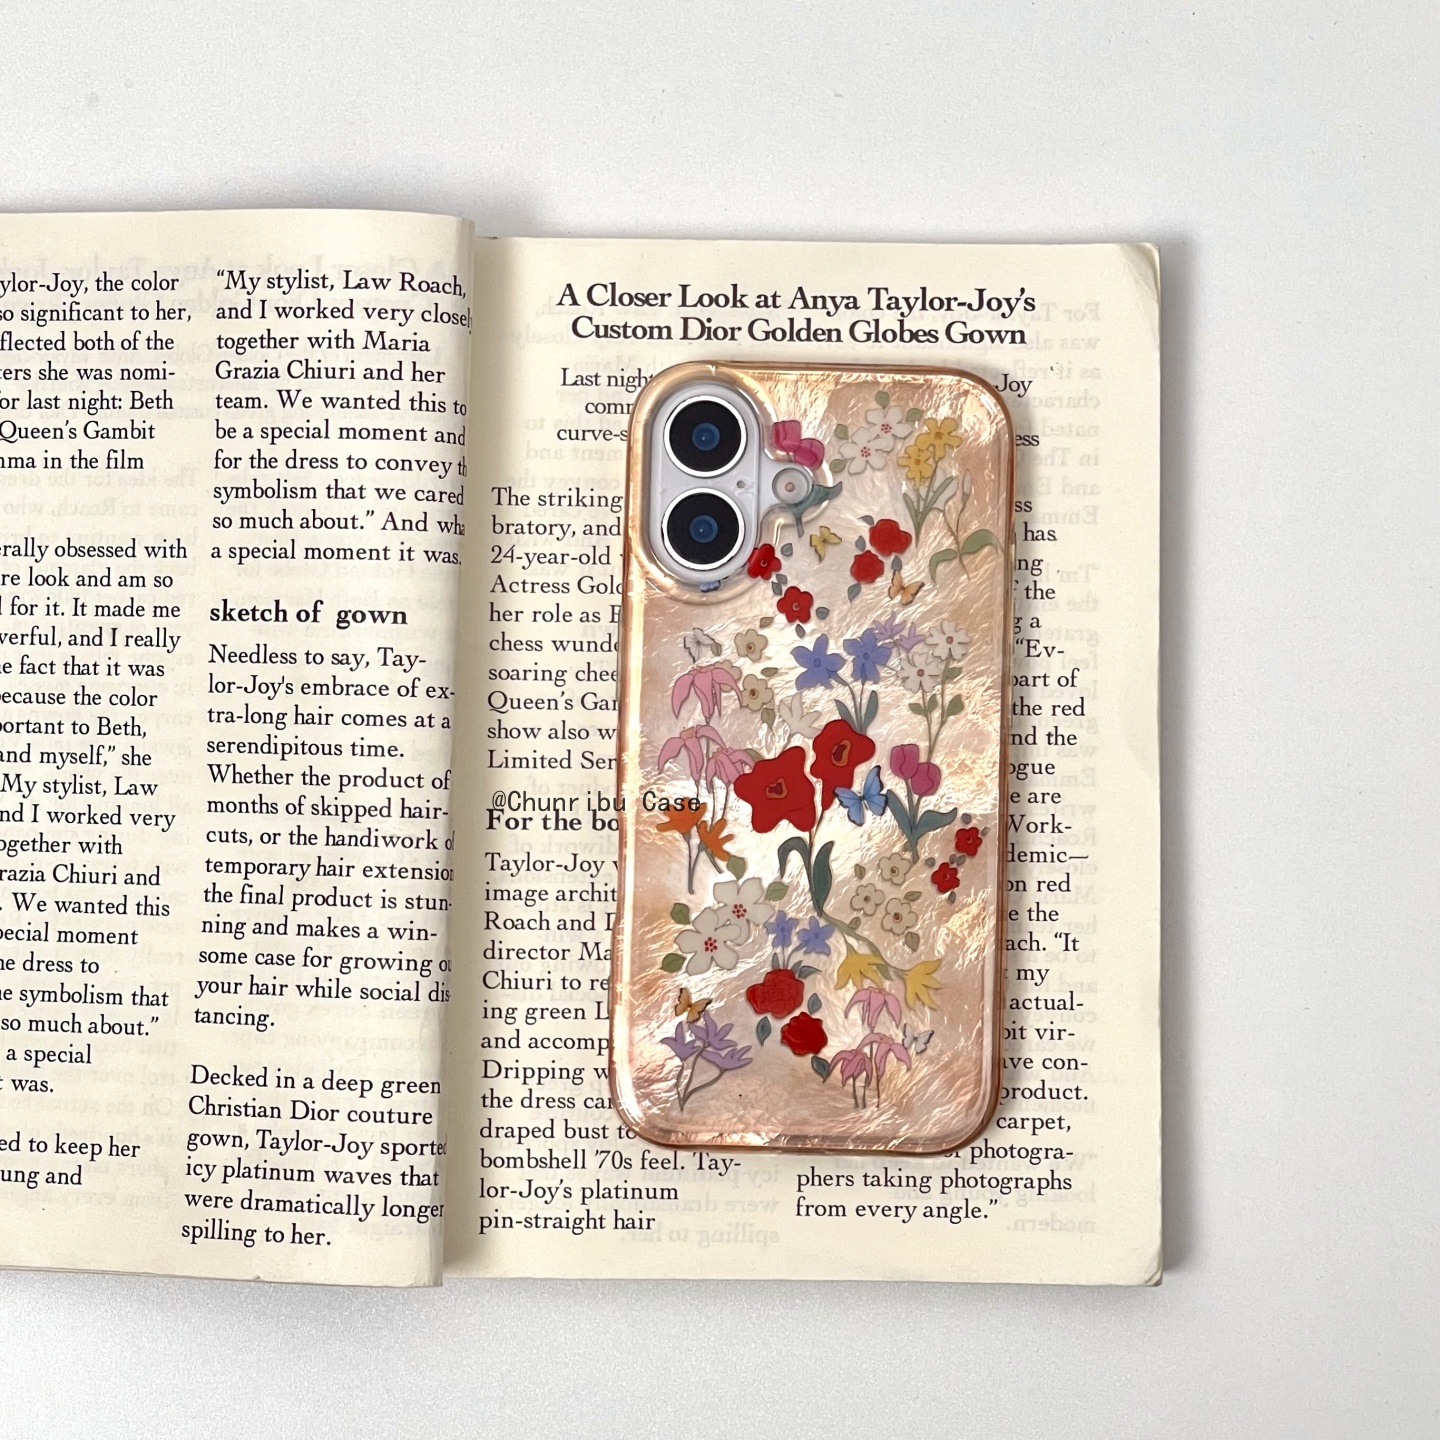 ylor-Joy, the color
so significant to her,
flected both of the
ters she was nomi-
for last night: Beth
Queen's Gambit
in the film
erally obsessed with
re look and am so
for it. It made me
verful, and I really
e fact that it was
because the color
portant to Beth,
and myself," she
My stylist, Law
nd I worked very
ogether with
razia Chiuri and
. We wanted this
pecial moment
he dress to
e symbolism that
so much about."
a special
t was.
ed to keep her
ung and
“My stylist, Law Roach,
and I worked very closel
together with Maria
Grazia Chiuri and her
team. We wanted this to
be a special moment and
for the dress to convey th
symbolism that we cared
so much about.” And wha
a special moment it was.
sketch of gown
Needless to say, Tay-
lor-Joy's embrace of ex-
tra-long hair comes at a
serendipitous time.
Whether the product of
months of skipped hair-
cuts, or the handiwork o
temporary hair extension
the final product is stun-
ning and makes a win-
some case for growing ou
your hair while social dis-
tancing.
Decked in a deep green
Christian Dior couture
gown, Taylor-Joy sported
icy platinum waves that
were dramatically longer
spilling to her.
A Closer Look at Anya Taylor-Joy’s
Custom Dior Golden Globes Gown
Last night
com
curve-s
The striking
bratory, and
24-year-old
Actress Gold
her role as
chess wund
soaring chee
Queen’s Gam
show also w
Limited Ser
@Chunribu Case
For the bo
Taylor-Joy
image archit
Roach and D
director Ma
Chiuri to re
ing green L
and accomp
Dripping w
the dress car
draped bust to
bombshell ’70s feel. Tay-
lor-Joy’s platinum
pin-straight hair
Joy
ess
ss
has
ing
the
g a
“Ev-
part of
the red
nd the
ogue
e are
Work-
demic—
on red
e the
ach. “It
my
actual-
bit vir-
ave con-
product.
carpet,
of photogra-
phers taking photographs
from every angle.”